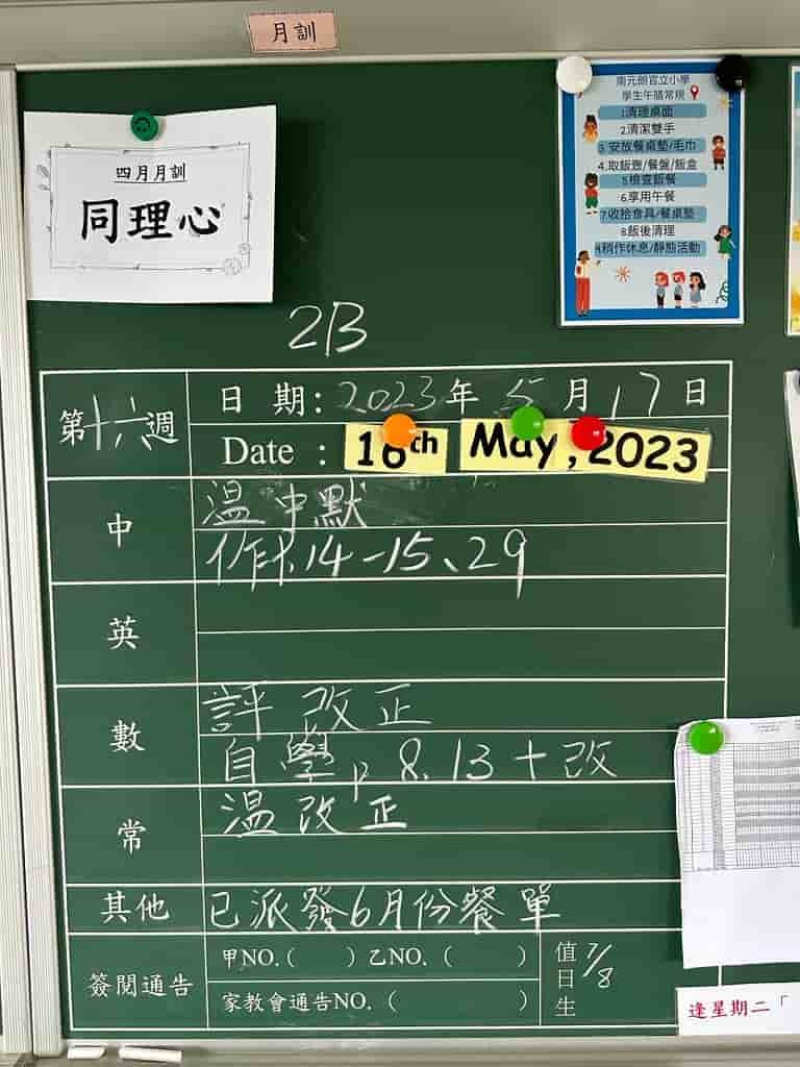 月訓
四月月訓
同理心
南元朗官立小學
學生午膳常規
1.清理桌面
2.清潔雙手
3.安放餐桌墊/毛巾
4.取飯壺/餐盤/飯盒
5.檢查飯餐
6.享用午餐
7.收拾食具/餐桌墊
8.飯後清理
9.稍作休息/靜態活動
2B
第十六週
日期：2023年5月17日
Date : 16th May, 2023
中
溫中默
作.14-15、29
英
數
評 改正
自學p 8.13+改
常
溫改正
其他
已派發6月份餐單
簽閱通告
甲NO.( ) 乙NO.( )
家教會通告NO.( )
值日生 7/8
逢星期二「